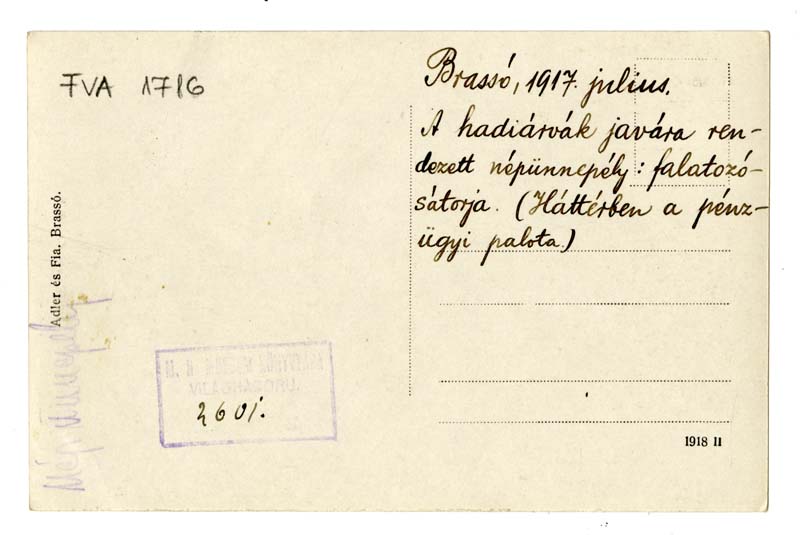 FVA 1716
Brassó, 1917. július.
A hadiárvák javára ren-
dezett népünnepély: falatozó-
sátorja. (Háttérben a pénz-
ügyi palota.)
Adler és Fia. Brassó.
Népünnepély
2601.
1918 II